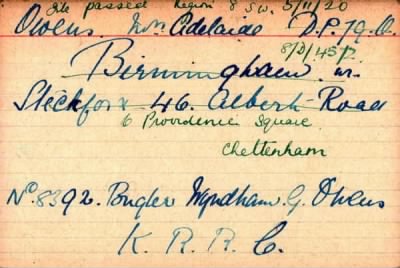 passed Region 8 S.W. 5/11/20
Owens. Mrs Adelaide D.P. 79.
8/D/4572
Birmingham.
Stechford 46. Albert Road
6 Providence Square
Cheltenham
No. 8392. Bugler Wyndham. G. Owens
K. R. R. C.